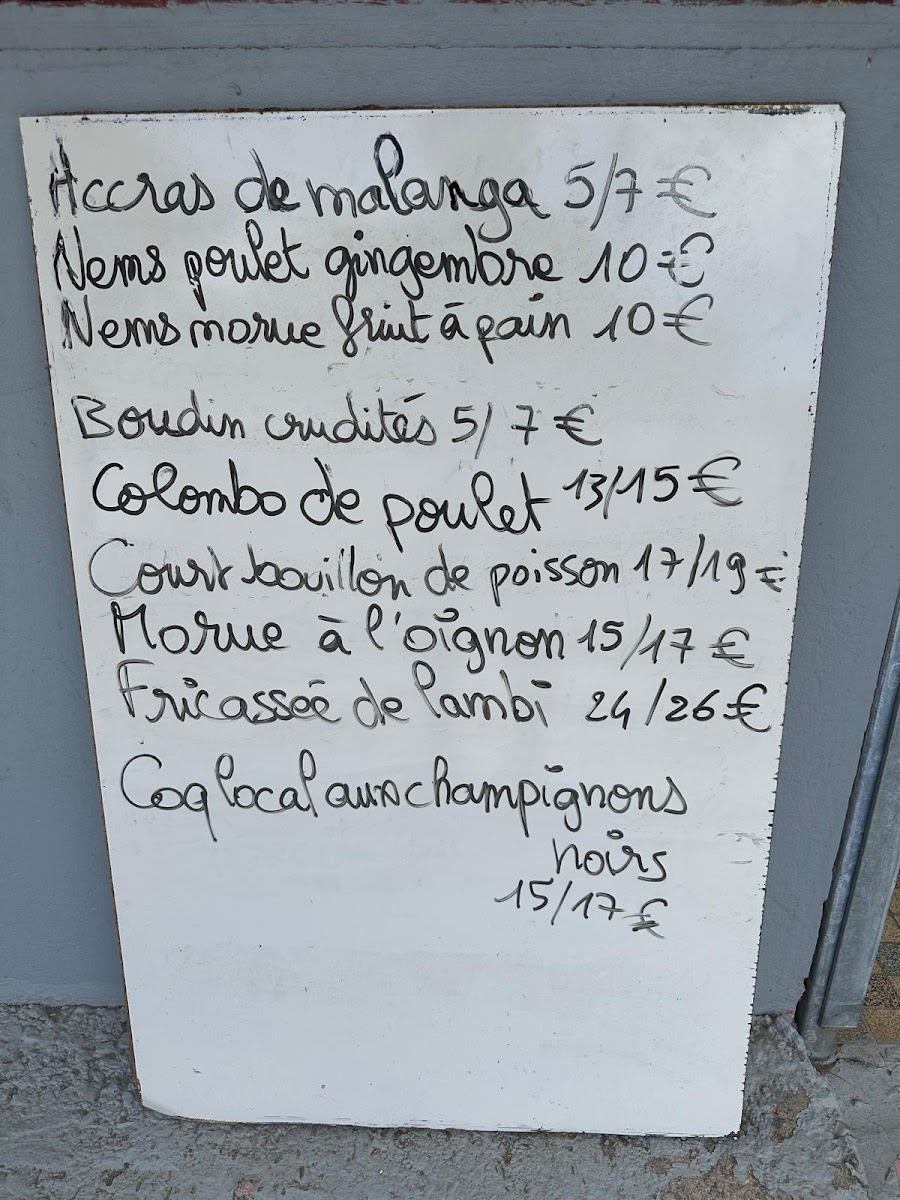 Accras de malanga 5/7 €
Nems poulet gingembre 10 €
Nems morue fruit à pain 10 €
Boudin crudités 5/7 €
Colombo de poulet 13/15 €
Court bouillon de poisson 17/19 €
Morue à l'oignon 15/17 €
Fricassée de lambi 24/26 €
Coq local aux champignons
noirs
15/17 €